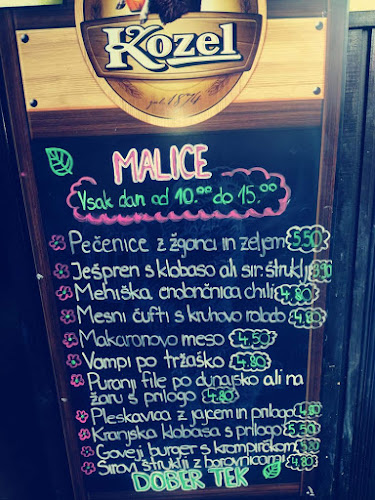 Kozel
1874
MALICE
Vsak dan od 10.00 do 15.00
Pečenice z žganci in zeljem 5,50
Ješpren s klobaso ali sir. štruklji
Mehiška enolončnica chili 4.80
Mesni čufti s kruhovo rolado 4.80
Makaronovo meso 4.50
Vampi po tržaško 4.80
Puranji file po dunajsko ali na
žaru s prilogo 4.80
Pleskavica z jajcem in prilogo 4.80
Kranjska klobasa s prilogo 5,50
Goveji burger s krompirčkom
Sirovi štruklji z borovnicami 4.80
DOBER TEK